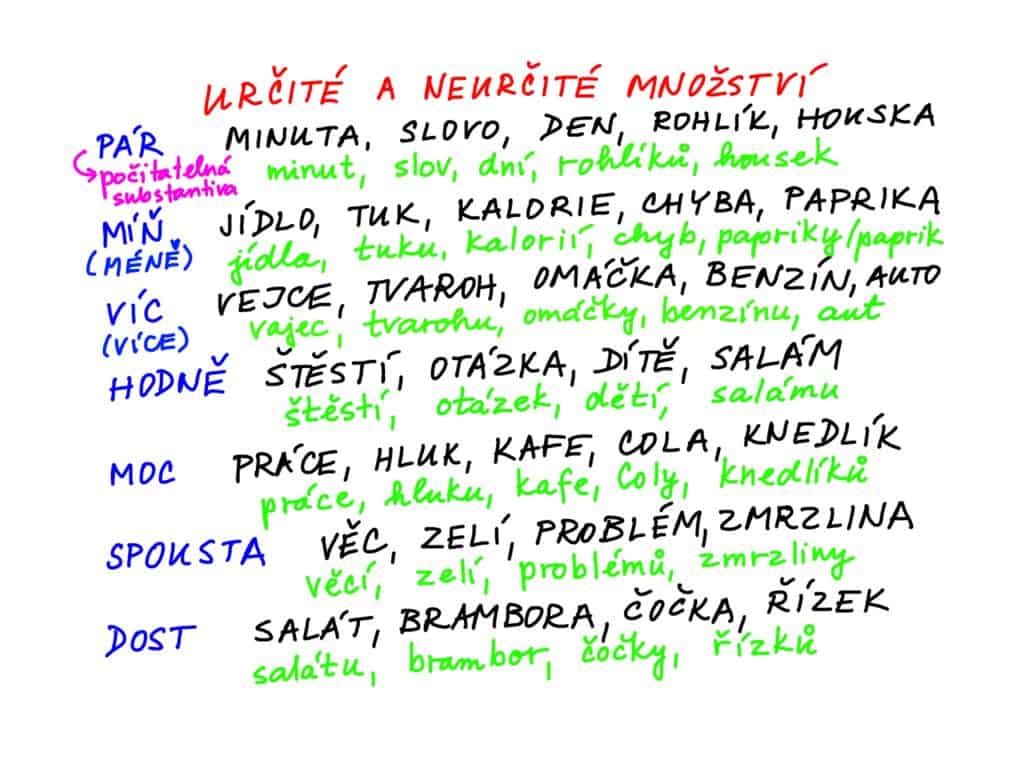 URČITÉ A NEURČITÉ MNOŽSTVÍ
PÁR MINUTA, SLOVO, DEN, ROHLÍK, HOUSKA
počitatelná substantiva
minut, slov, dní, rohlíků, housek
MÍŇ (MÉNĚ) JÍDLO, TUK, KALORIE, CHYBA, PAPRIKA
jídla, tuku, kalorií, chyb, papriky/paprik
VÍC (VÍCE) VEJCE, TVAROH, OMÁČKA, BENZÍN, AUTO
vajec, tvarohu, omáčky, benzínu, aut
HODNĚ ŠTĚSTÍ, OTÁZKA, DÍTĚ, SALÁM
štěstí, otázek, dětí, salámu
MOC PRÁCE, HLUK, KAFE, COLA, KNEDLÍK
práce, hluku, kafe, Coly, knedlíků
SPOUSTA VĚC, ZELÍ, PROBLÉM, ZMRZLINA
věcí, zelí, problémů, zmrzliny
DOST SALÁT, BRAMBORA, ČOČKA, ŘÍZEK
salátu, brambor, čočky, řízků